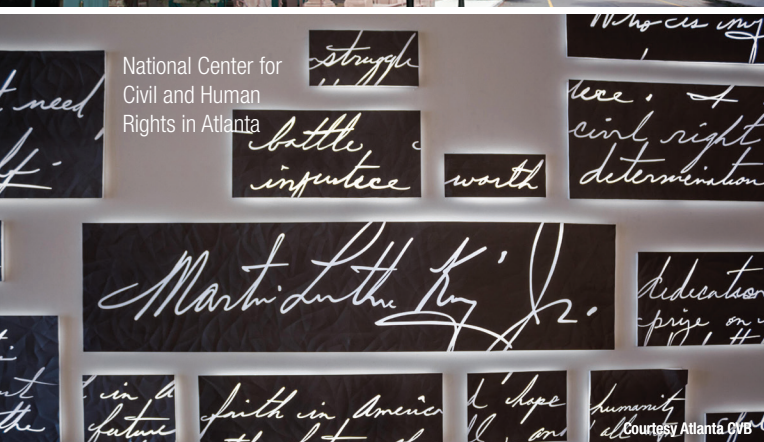 National Center for
Civil and Human
Rights in Atlanta
struggle
need
battle
injustice
worth
civil right
determination
Martin Luther King Jr.
dedication
prize on
in A
future
faith in America
hope
and
humanity
the
Courtesy Atlanta CVB